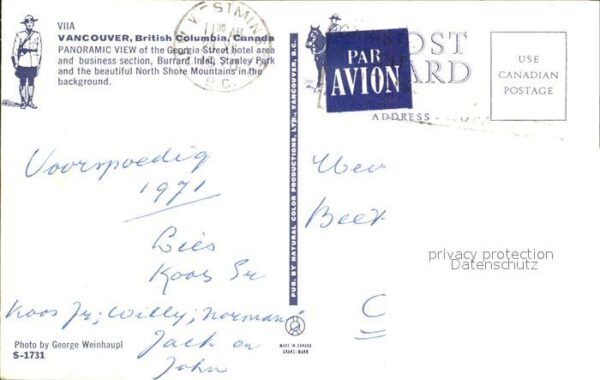 VIIA
VANCOUVER, British Columbia, Canada
PANORAMIC VIEW of the Georgia Street hotel area
and business section, Burrard Inlet, Stanley Park
and the beautiful North Shore Mountains in the
background.
Voorspoedig
1971
Lies
Koos Sr
Koos Jr; Willy; Norman;
Jack en
John
Photo by George Weinhaupl
S-1731
PUB. BY NATURAL COLOR PRODUCTIONS, LTD., VANCOUVER, B.C.
MADE IN CANADA
PAR
AVION
OST
ARD
ADDRESS
USE
CANADIAN
POSTAGE
B.C.
privacy protection
Datenschutz